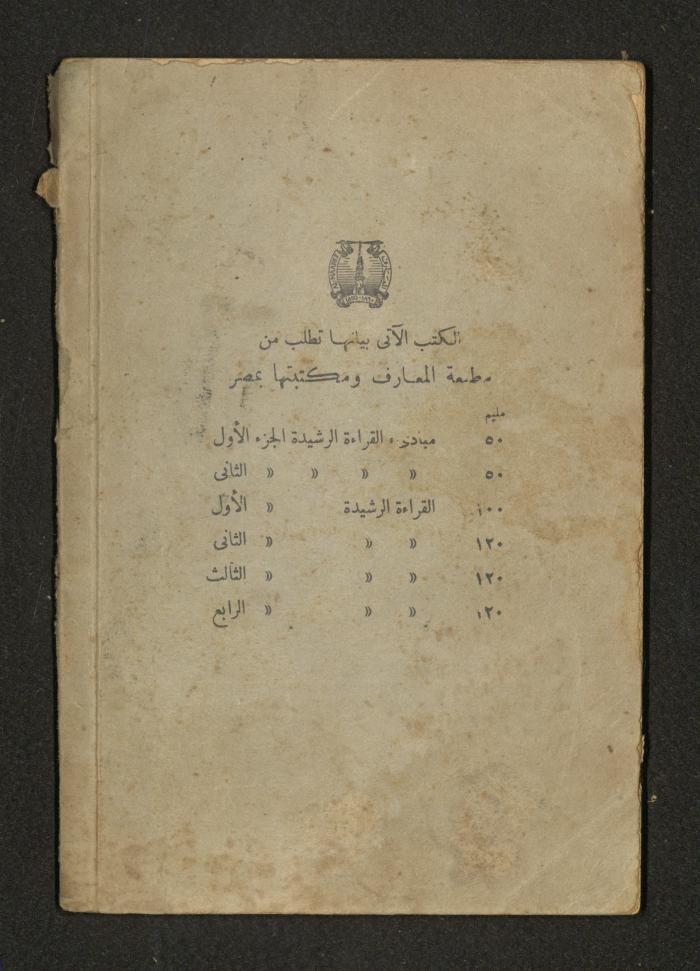 الكتب الآتى بيانها تطلب من
مطبعة المعارف ومكتبتها بمصر
مليم
٥٠ مبادىء القراءة الرشيدة الجزء الأول
٥٠ » » » » الثانى
١٠٠ القراءة الرشيدة » الأول
١٢٠ » » » الثانى
١٢٠ » » » الثالث
١٢٠ » » » الرابع